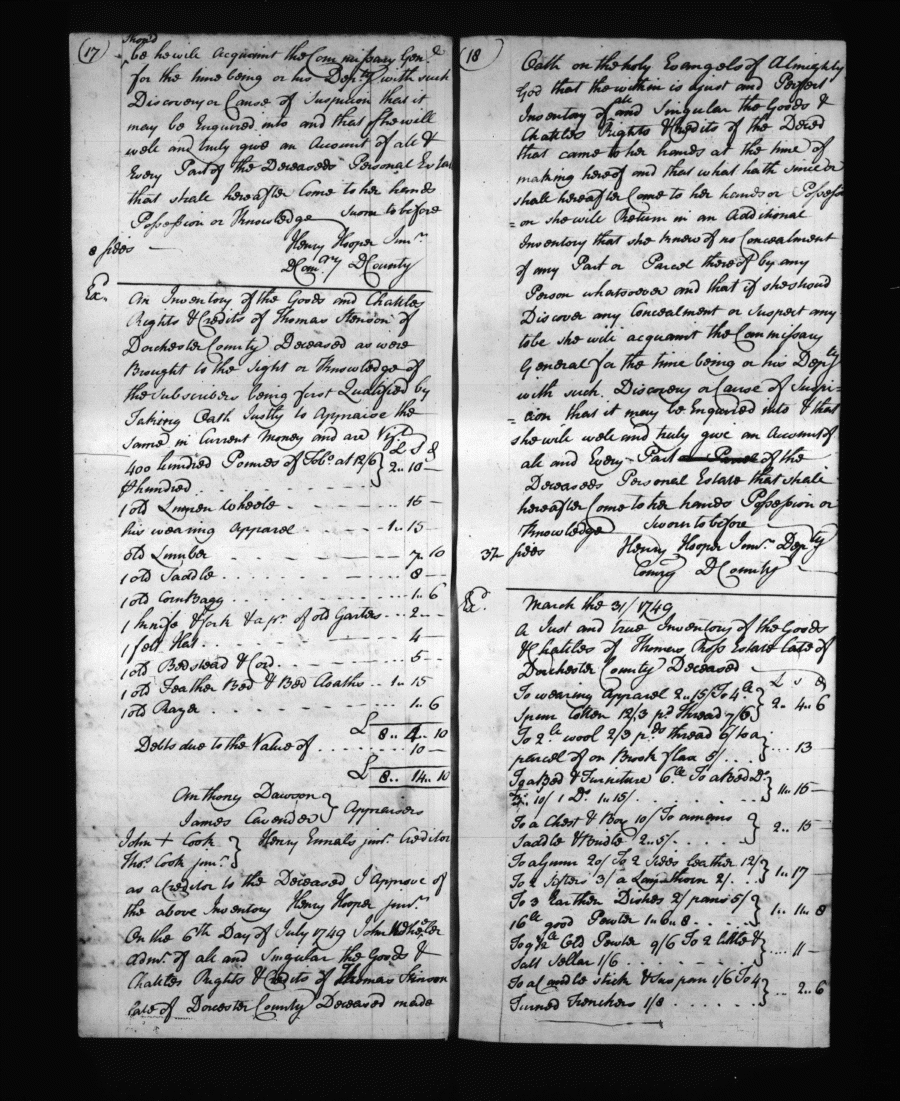 (17)
Should
be he will acquaint the Commissary Gen.
for the time being or his Depty with such
Discovery or Cause of Suspicion that it
may be Enquired into and that She will
well and truly give an Account of all &
Every Part of the Deceaseds Personal Estate
that shall hereafter Come to her hands
Possession or Knowledge Sworn to before
8 sides Henry Hooper Junr.
DComry DCounty
Ex.
An Inventory of the Goods and Chatles
Rights & Credits of Thomas Stenson of
Dorchester County Deceased as were
Brought to the Sight or Knowledge of
the Subscribers being first Qualified by
Takeing Oath Justly to Appraise the
Same in Current Money and are Vizt
£ S d
400 hundred Pounds of Tobo. at 12/6 } 2..10 —
& hundred
1 old Linnen Wheele 15 —
his wearing Apparel 1..15
old Lumber 7..10
1 old Saddle 8 —
1 old Corn Bagg 1..6
1 knife & fork & a pr. of old Garters 2 —
1 felt Hat 4 —
1 old Bedstead & Cord 5 —
1 old Feather Bed & Bed Cloaths 1..15
1 old Razer 1..6
£ 8..4..10
Debts due to the Value of 10 —
£ 8..14..10
Anthony Dawson }
James Cavender } Appraisers
John + Cook } Henry Ennals junr. Creditor
Thos. Cook junr. }
as a Creditor to the Deceased I Approve of
the above Inventory Henry Hooper junr.
On the 6th Day of July 1749 John Wheeler
Admr. of all and Singular the Goods &
Chatles Rights & Credits of Thomas Stinson
late of Dorcester County Deceased made
(18)
Oath on the holy Evangels of Almighty
God that the within is a just and Perfect
Inventory of all and Singular the Goods &
Chatles Rights & Credits of the Deced
that came to her hands at the time of
making hereof and that what hath since or
shall hereafter Come to her hands or Possessi
=on she will Return in an Additional
Inventory that she knew of no Concealment
of any Part or Parcel thereof by any
Person whatsoever and that if she should
Discover any Concealment or Suspect any
tobe she will acquaint the Commissary
General for the time being or his Depty
with such Discovery or Cause of Suspi
=cion that it may be Enquired into & that
she will well and truly give an Account of
all and Every Part of the
Deceaseds Personal Estate that shall
hereafter Come to her hands Possession or
Knowledge Sworn to before
37 sides Henry Hooper Junr. Depty
Comry DCounty
Exd.
March the 31/1749
A Just and true Inventory of the Goods
& Chatles of Thomas Ross Estate late of
Dorchester County Deceased
£ S d
To wearing Apparel 2..15/ To 4 lb }
Spun Cotten 12/3 pd. thread 7/6 } 2..4..6
To 2 lb wool 2/3 pds thread 6/ to a }
parcel of on Brook flax 5/ } 13 —
To a Bed & Furniture 6 To a Bed Do. }
10/ 1 Do. 1..15/ } 11..15 —
To a Chest & Box 10/ To a mans }
Saddle & Bridle 2..5/ } 2..15 —
To a Gunn 20/ To 2 Sides leather 12/ }
To 2 Sifters 3/ a 2/ } 1..17 —
To 3 Earthen Dishes 2/ pans 5/ }
16 lb good Pewter 1..6..8 } 1..11..8
To 9 lb Old Pewter 9/6 To 2 little }
Salt Sellar 1/6 } 11 —
To a Candle stick & Tus pan 1/6 To 4 }
Turned Trenchers 1/8 } 2..6